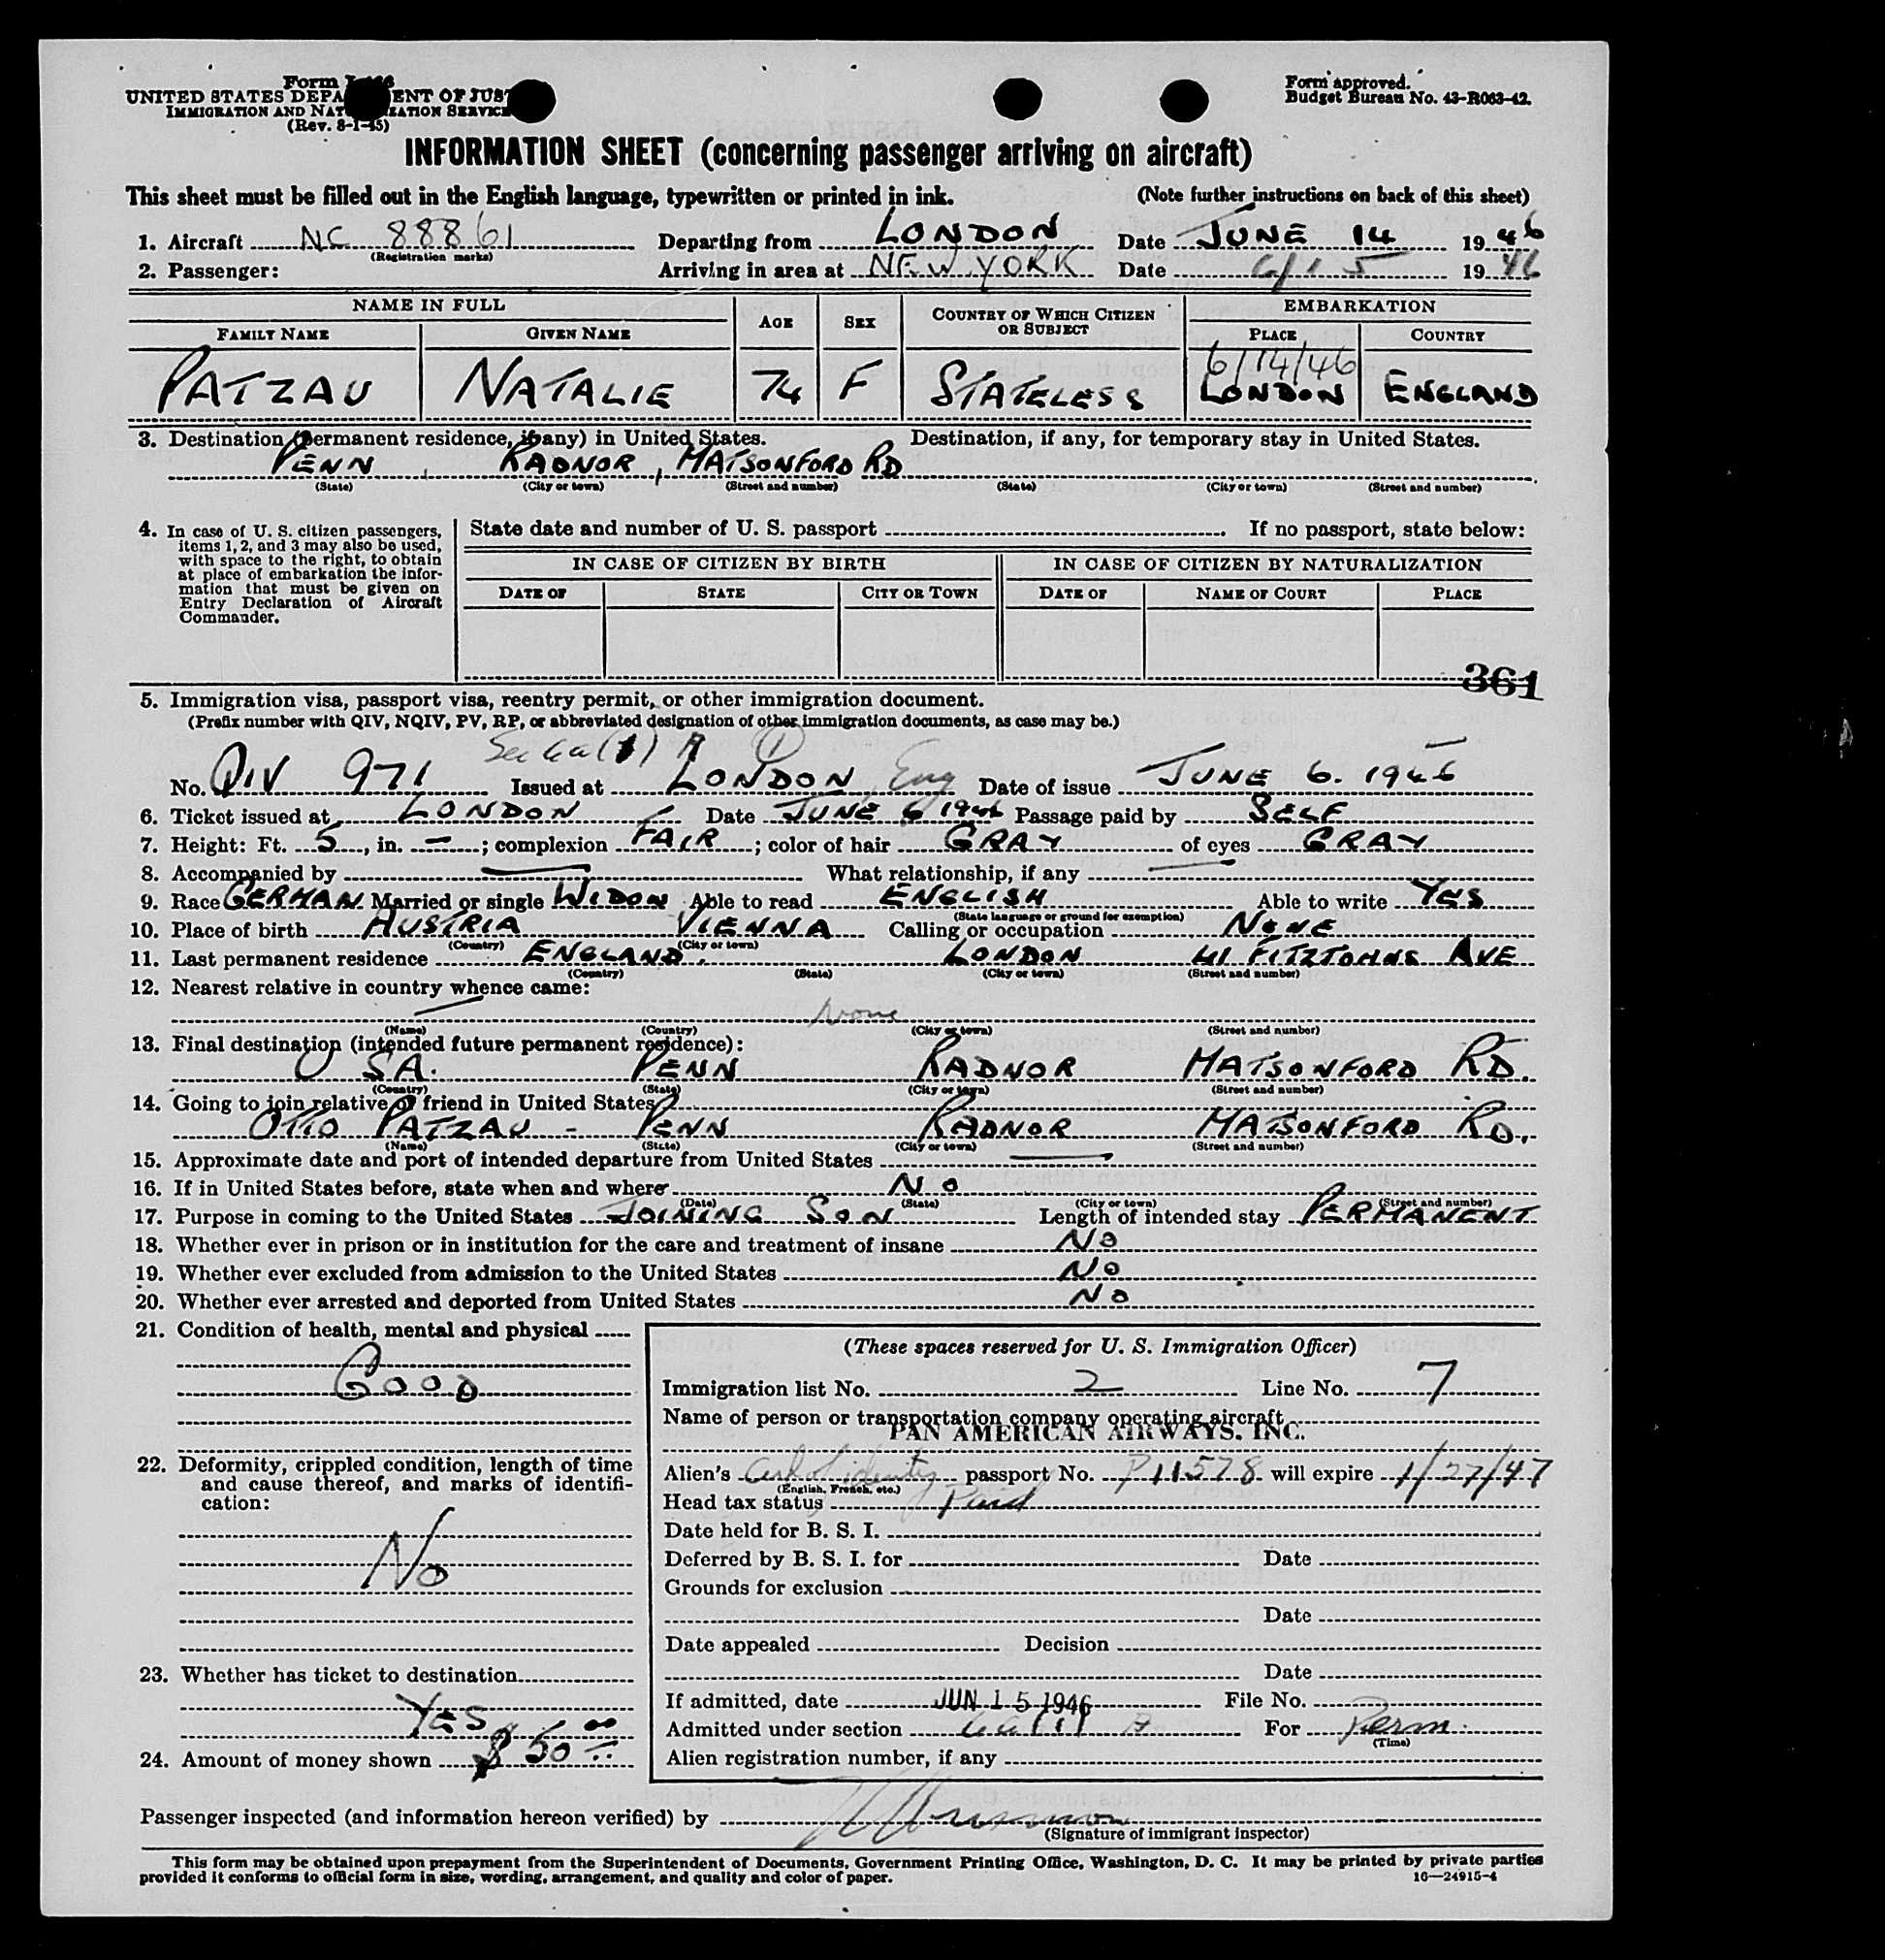 Form
UNITED STATES DEPA ENT OF JUST
IMMIGRATION AND NAT IZATION SERVICE
(Rev. 8-1-45)
Form approved.
Budget Bureau No. 43-R063-42.
INFORMATION SHEET (concerning passenger arriving on aircraft)
This sheet must be filled out in the English language, typewritten or printed in ink. (Note further instructions on back of this sheet)
1. Aircraft NC 88861 Departing from LONDON Date JUNE 14 1946
(Registration marks)
2. Passenger: Arriving in area at NEW YORK Date 6/15 1946
NAME IN FULL AGE SEX COUNTRY OF WHICH CITIZEN OR SUBJECT EMBARKATION
FAMILY NAME GIVEN NAME PLACE COUNTRY
6/14/46
PATZAU NATALIE 74 F STATELESS LONDON ENGLAND
3. Destination (permanent residence, if any) in United States. Destination, if any, for temporary stay in United States.
PENN, RADNOR, MATSONFORD RD
(State) (City or town) (Street and number) (State) (City or town) (Street and number)
4. In case of U. S. citizen passengers,
items 1, 2, and 3 may also be used,
with space to the right, to obtain
at place of embarkation the infor-
mation that must be given on
Entry Declaration of Aircraft
Commander.
State date and number of U. S. passport . If no passport, state below:
IN CASE OF CITIZEN BY BIRTH IN CASE OF CITIZEN BY NATURALIZATION
DATE OF STATE CITY OR TOWN DATE OF NAME OF COURT PLACE
361
5. Immigration visa, passport visa, reentry permit, or other immigration document.
(Prefix number with QIV, NQIV, PV, RP, or abbreviated designation of other immigration documents, as case may be.)
Sec 6a(1) A (1)
No. QIV 971 Issued at LONDON, Eng Date of issue JUNE 6. 1946
6. Ticket issued at LONDON Date JUNE 6 1946 Passage paid by SELF
7. Height: Ft. 5, in. —; complexion FAIR; color of hair GRAY of eyes GRAY
8. Accompanied by — What relationship, if any —
9. Race GERMAN Married or single WIDOW Able to read ENGLISH Able to write YES
(State language or ground for exemption)
10. Place of birth AUSTRIA VIENNA Calling or occupation NONE
(Country) (City or town)
11. Last permanent residence ENGLAND. LONDON 41 FITZJOHNS AVE
(Country) (State) (City or town) (Street and number)
12. Nearest relative in country whence came:
— None
(Name) (Country) (City or town) (Street and number)
13. Final destination (intended future permanent residence):
U SA. PENN RADNOR MATSONFORD RD.
(Country) (State) (City or town) (Street and number)
14. Going to join relative or friend in United States
OTTO PATZAU - PENN RADNOR MATSONFORD RD.
(Name) (State) (City or town) (Street and number)
15. Approximate date and port of intended departure from United States —
16. If in United States before, state when and where NO
(Date) (State) (City or town) (Street and number)
17. Purpose in coming to the United States JOINING SON Length of intended stay PERMANENT
18. Whether ever in prison or in institution for the care and treatment of insane NO
19. Whether ever excluded from admission to the United States NO
20. Whether ever arrested and deported from United States NO
21. Condition of health, mental and physical
GOOD
22. Deformity, crippled condition, length of time
and cause thereof, and marks of identifi-
cation:
No
23. Whether has ticket to destination
YES
24. Amount of money shown $ 50 00
(These spaces reserved for U. S. Immigration Officer)
Immigration list No. 2 Line No. 7
Name of person or transportation company operating aircraft
PAN AMERICAN AIRWAYS, INC.
Alien's Card of identity passport No. P11578 will expire 1/27/47
(English, French, etc.)
Head tax status Paid
Date held for B. S. I.
Deferred by B. S. I. for Date
Grounds for exclusion
Date
Date appealed Decision
Date
If admitted, date JUN 15 1946 File No.
Admitted under section 6a(1) A For Perm.
(Time)
Alien registration number, if any
Passenger inspected (and information hereon verified) by
(Signature of immigrant inspector)
This form may be obtained upon prepayment from the Superintendent of Documents, Government Printing Office, Washington, D. C. It may be printed by private parties
provided it conforms to official form in size, wording, arrangement, and quality and color of paper. 16—24915-4